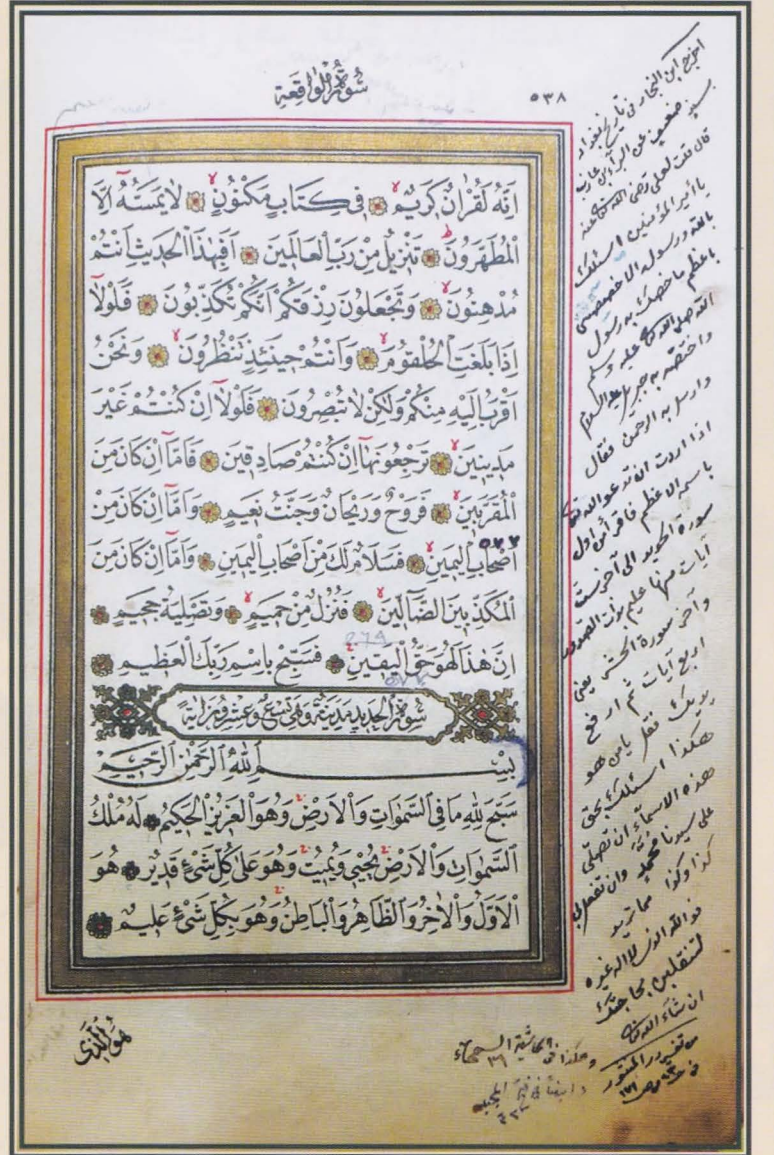 سُورَةُ الْوَاقِعَةِ
٥٣٨
اِنَّهُ لَقُرْاٰنٌ كَرِيمٌ فِى كِتَابٍ مَكْنُونٍ لَا يَمَسُّهُٓ اِلَّا
الْمُطَهَّرُونَ تَنْزِيلٌ مِنْ رَبِّ الْعَالَمِينَ اَفَبِهٰذَا الْحَدِيثِ اَنْتُمْ
مُدْهِنُونَ وَتَجْعَلُونَ رِزْقَكُمْ اَنَّكُمْ تُكَذِّبُونَ فَلَوْلَٓا
اِذَا بَلَغَتِ الْحُلْقُومَ وَاَنْتُمْ حِينَئِذٍ تَنْظُرُونَ وَنَحْنُ
اَقْرَبُ اِلَيْهِ مِنْكُمْ وَلٰكِنْ لَا تُبْصِرُونَ فَلَوْلَٓا اِنْ كُنْتُمْ غَيْرَ
مَدِينِينَ تَرْجِعُونَهَٓا اِنْ كُنْتُمْ صَادِقِينَ فَاَمَّٓا اِنْ كَانَ مِنَ
الْمُقَرَّبِينَ فَرَوْحٌ وَرَيْحَانٌ وَجَنَّتُ نَعِيمٍ وَاَمَّٓا اِنْ كَانَ مِنْ
اَصْحَابِ الْيَمِينِ فَسَلَامٌ لَكَ مِنْ اَصْحَابِ الْيَمِينِ وَاَمَّٓا اِنْ كَانَ مِنَ
الْمُكَذِّبِينَ الضَّٓالِّينَ فَنُزُلٌ مِنْ حَمِيمٍ وَتَصْلِيَةُ جَحِيمٍ
اِنَّ هٰذَا لَهُوَ حَقُّ الْيَقِينِ فَسَبِّحْ بِاسْمِ رَبِّكَ الْعَظِيمِ
سُورَةُ الْحَدِيدِ مَدَنِيَّةٌ وَهِىَ تِسْعٌ وَعِشْرُونَ اٰيَةً
بِسْمِ اللّٰهِ الرَّحْمٰنِ الرَّحِيمِ
سَبَّحَ لِلّٰهِ مَا فِى السَّمٰوَاتِ وَالْاَرْضِ وَهُوَ الْعَزِيزُ الْحَكِيمُ لَهُ مُلْكُ
السَّمٰوَاتِ وَالْاَرْضِ يُحْيِى وَيُمِيتُ وَهُوَ عَلٰى كُلِّ شَىْءٍ قَدِيرٌ هُوَ
الْاَوَّلُ وَالْاٰخِرُ وَالظَّاهِرُ وَالْبَاطِنُ وَهُوَ بِكُلِّ شَىْءٍ عَلِيمٌ
هُوَ الَّذِى
اخرج ابن النجار فى تاريخ بغداد
بسند ضعيف عن البراء بن عازب
قال قلت لعلى رضى الله عنه
يا امير المؤمنين اسئلك
بالله ورسوله الا خصصتنى
باعظم ما خصك به رسول
الله صلى الله عليه وسلم
واختصه به جبرئيل عليه السلام
وارسله به الرحمن فقال
اذا اردت ان تدعو الله
باسمه الاعظم فاقرأ من اول
سورة الحديد الى آخر ست
آيات منها عليم بذات الصدور
وآخر سورة الحشر يعنى
اربع آيات ثم ارفع
يديك فقل يا من هو
هكذا اسئلك بحق
هذه الاسماء ان تصلى
على سيدنا محمد وان تفعل بى
كذا وكذا مما تريد
فو الله الذى لا اله غيره
لتنقلبن بحاجتك
ان شاء الله
من تفسير در المنثور